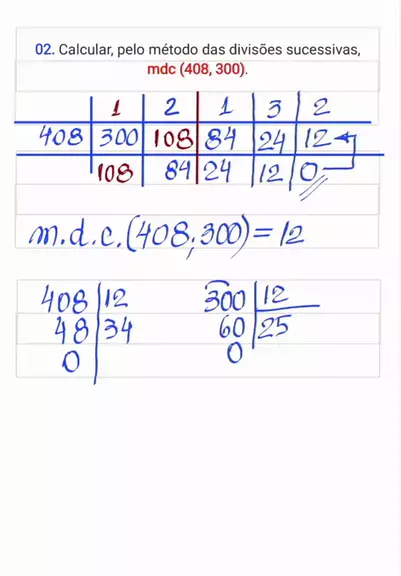 02. Calcular, pelo método das divisões sucessivas,
mdc (408, 300).
1 2 1 3 2
408 300 108 84 24 12
108 84 24 12 0
m.d.c.(408;300)=12
408 12 300 12
48 34 60 25
0 0